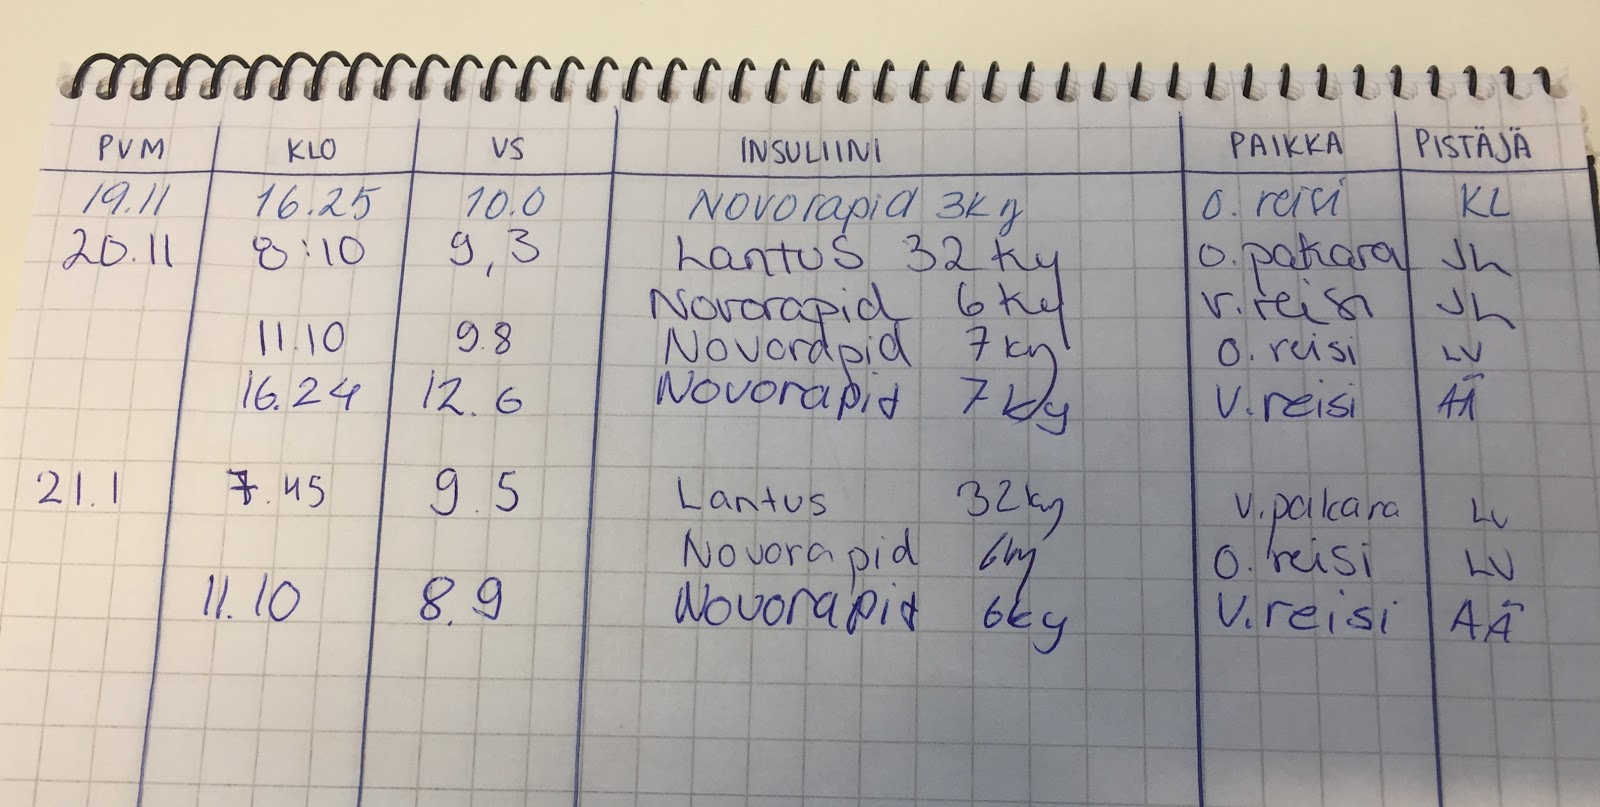 PVM KLO VS INSULIINI PAIKKA PISTÄJÄ
19.11 16.25 10.0 Novorapid 3ky o. reisi KL
20.11 8:10 9,3 Lantus 32 ky o. pakara JL
Novorapid 6 ky v. reisi JL
11.10 9.8 Novorapid 7 ky o. reisi LV
16.24 12.6 Novorapid 7 ky V. reisi AÄ
21.1 7.45 9.5 Lantus 32 ky v. pakara LV
Novorapid 6ky o. reisi LV
11.10 8.9 Novorapid 6ky V. reisi AÄ